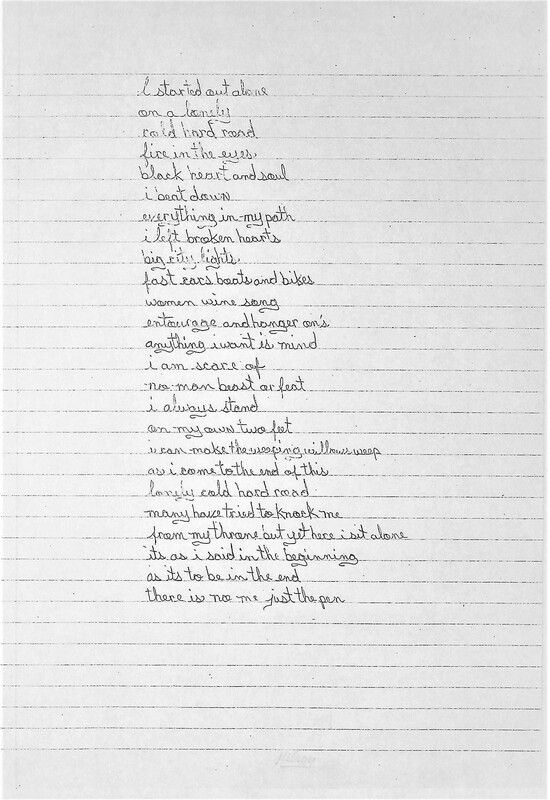 I started out alone
on a lonely
cold hard road
fire in the eyes.
black heart and soul
i beat down
everything in my path
i left broken hearts
big city lights.
fast cars boats and bikes
women wine song
entourage and hanger on's
anything i want is mind
i am scare of
no man beast or feat
i always stand
on my own two feet
i can make the weeping willows weep
as i come to the end of this
lonely cold hard road
many have tried to knock me
from my throne but yet here i sit alone
its as i said in the beginning
as its to be in the end
there is no me just the pen